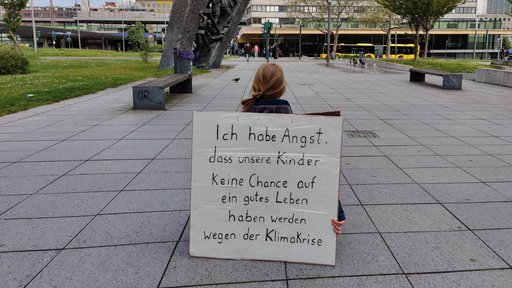 Ich habe Angst,
dass unsere Kinder
keine Chance auf
ein gutes Leben
haben werden
wegen der Klimakrise